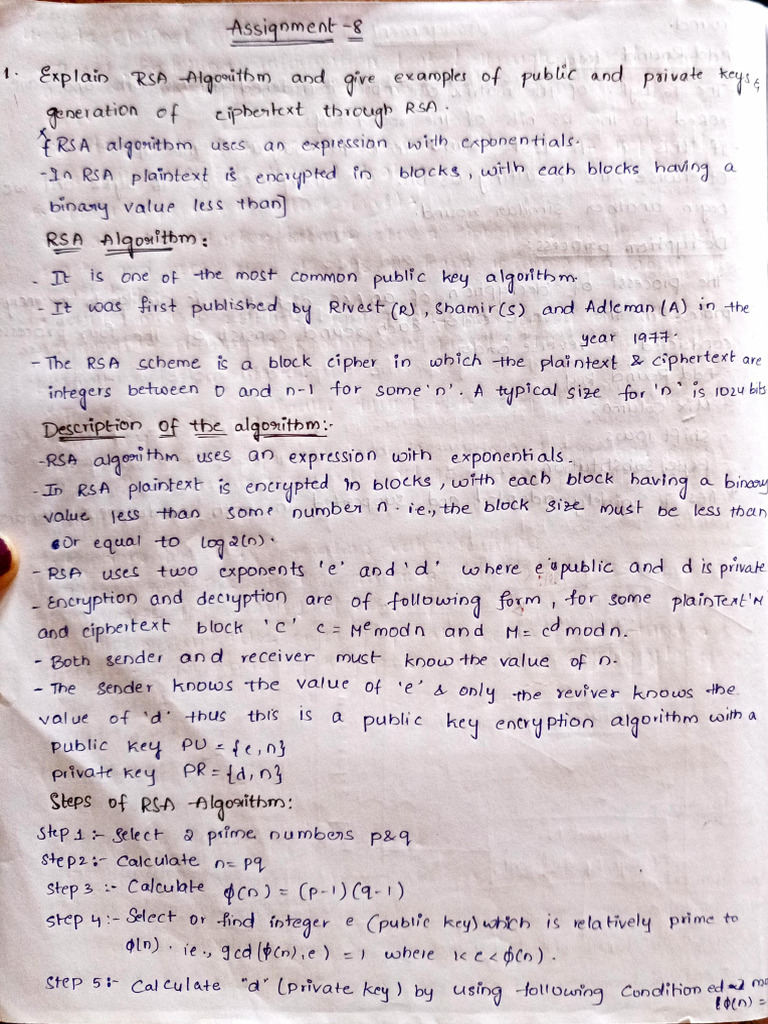 Assignment-8
1. Explain RSA Algorithm and give examples of public and private keys,
generation of ciphertext through RSA.
{RSA algorithm uses an expression with exponentials.
-In RSA plaintext is encrypted in blocks, with each blocks having a
binary value less than]
RSA Algorithm:
- It is one of the most common public key algorithm.
- It was first published by Rivest(R), Shamir(S) and Adleman(A) in the
year 1977.
- The RSA scheme is a block cipher in which the plaintext & ciphertext are
integers between 0 and n-1 for some 'n'. A typical size for 'n' is 1024 bits
Description of the algorithm:-
-RSA algorithm uses an expression with exponentials.
- In RSA plaintext is encrypted in blocks, with each block having a binary
value less than some number n. ie., the block size must be less than
or equal to log2(n).
- RSA uses two exponents 'e' and 'd' where e is public and d is private
- Encryption and decryption are of following form, for some plainText 'M
and ciphertext block 'c' c = M^e mod n and M = c^d mod n.
- Both sender and receiver must know the value of n.
- The sender knows the value of 'e' & only the reviver knows the
value of 'd' thus this is a public key encryption algorithm with a
public key PU = {e, n}
private key PR = {d, n}
Steps of RSA Algorithm:
Step 1:- Select 2 prime numbers p&q
Step2:- Calculate n= pq
Step 3 :- Calculate ϕ(n) = (p-1)(q-1)
Step 4:- Select or find integer e (public key) which is relatively prime to
ϕ(n). ie., gcd(ϕ(n), e) = 1 where 1<e<ϕ(n).
Step 5:- Calculate "d" (private key) by using following Condition ed=1 mo
ϕ(n) =